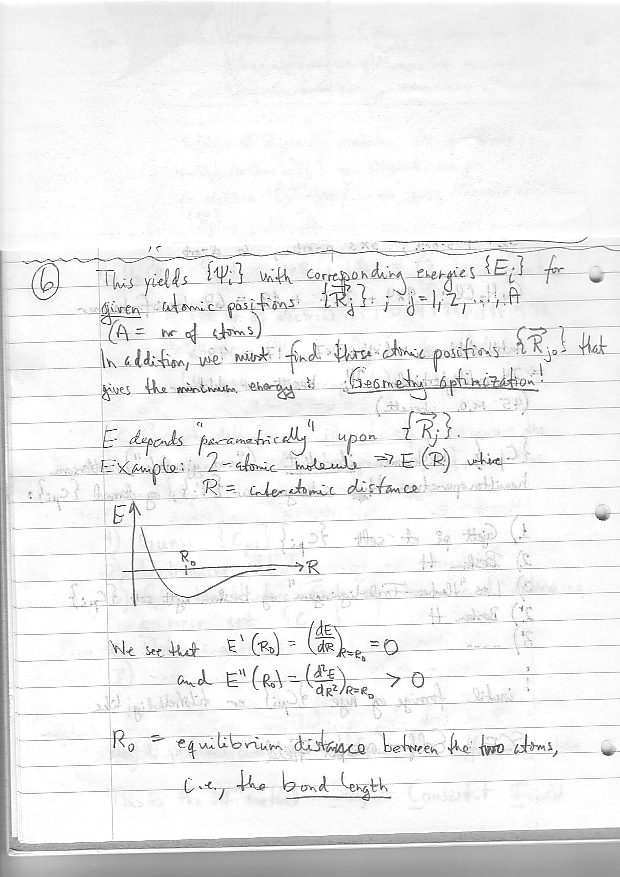 ⑥ This yields {Ψi} with corresponding energies {Ei} for
given atomic positions {R⃗j} ; j=1,2,...,A
(A = nr of atoms)
In addition, we must find those atomic positions {R⃗jo} that
gives the minimum energy : Geometry optimization!
E depends "parametrically" upon {R⃗j}.
Example: 2-atomic molecule ⇒ E(R) where
R = interatomic distance
E
Ro
R
We see that E'(Ro) = (dE/dR)R=Ro = 0
and E"(Ro) = (d²E/dR²)R=Ro > 0
Ro = equilibrium distance between the two atoms,
i.e., the bond length